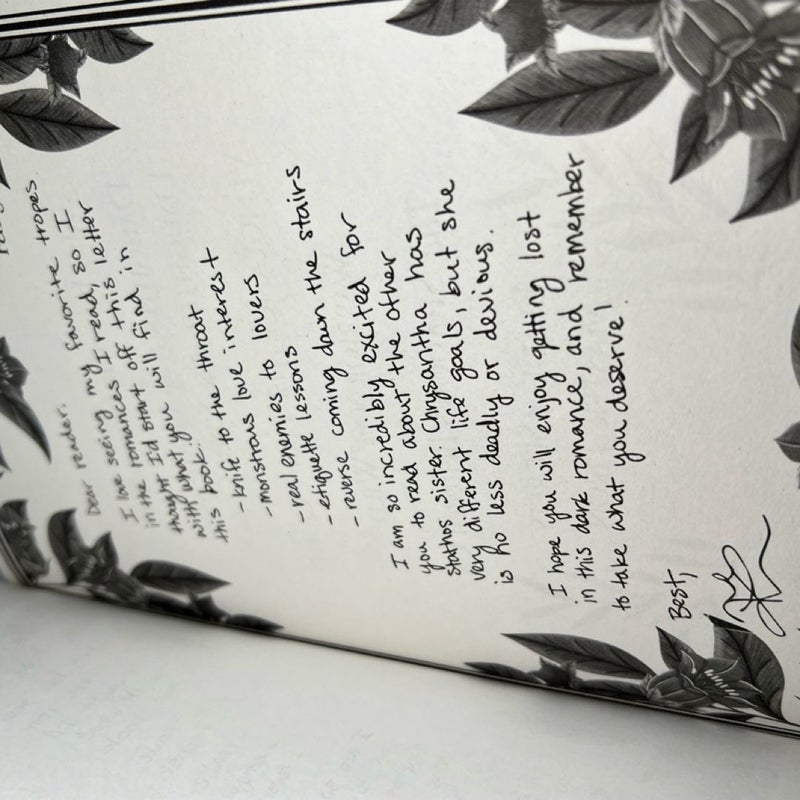 Dear reader,
I love seeing my favorite tropes
in the romances I read, so I
thought I'd start off this letter
with what you will find in
this book.
- knife to the throat
- monstrous love interest
- real enemies to lovers
- etiquette lessons
- reverse coming down the stairs
I am so incredibly excited for
you to read about the other
Stathos sister. Chrysantha has
very different life goals, but she
is no less deadly or devious.
I hope you will enjoy getting lost
in this dark romance, and remember
to take what you deserve!
Best,